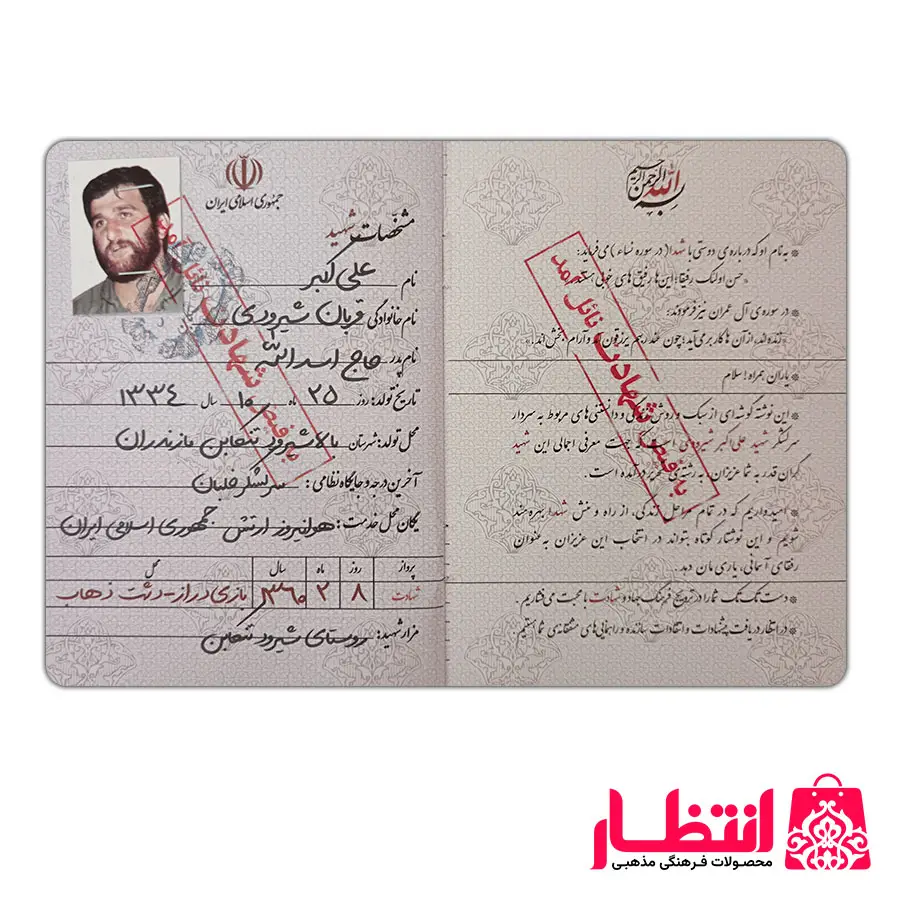 بسم الله الرحمن الرحیم
* به نام او که درباره‌ی دوستی با شهدا (در سوره نساء) می‌فرماید:
«حسن اولئک رفیقا؛ این‌ها رفیق‌های خوبی هستند»
* در سوره‌ی آل عمران نیز فرمودند:
«زنده‌اند، از آن‌ها کار برمی‌آید؛ چون عند ربهم یرزقون‌اند و آرام بخش‌اند!»
* یاران همراه! سلام
* این نوشته گوشه‌ای از سبک و روش زندگی و دانستنی‌های مربوط به سردار
سرلشکر شهید علی‌اکبر شیرودی است که جهت معرفی اجمالی این شهید
گران قدر به شما عزیزان، به رشته‌ی تحریر درآمده است.
* امیدواریم که در تمام مراحل زندگی، از راه و منش شهدا بهره‌مند
شویم و این نوشتار کوتاه بتواند در انتخاب این عزیزان به‌عنوان
رفقای آسمانی، یاری‌مان دهد.
* دست تک تک شما را در ترویج فرهنگ جهاد و شهادت با محبت می‌فشاریم.
* در انتظار دریافت پیشنهادات و انتقادات سازنده و راهنمایی‌های مشفقانه‌ی شما هستیم
به فیض شهادت نائل آمد
جمهوری اسلامی ایران
مشخصات شهید
نام علی اکبر
نام خانوادگی قربان شیرودی
نام پدر حاج اسدالله
تاریخ تولد: روز ۲۵ ماه ۱۰ سال ۱۳۳۴
محل تولد: شهرستان بالاشیرود تنکابن مازندران
آخرین درجه و جایگاه نظامی: سرلشکر خلبان
یگان محل خدمت: هوانیروز ارتش جمهوری اسلامی ایران
پرواز روز ماه سال محل
شهادت ۸ ۲ ۱۳۶۰ بازی دراز - دشت ذهاب
مزار شهید: روستای شیرود تنکابن
به فیض شهادت نائل آمد
انتظار
محصولات فرهنگی مذهبی